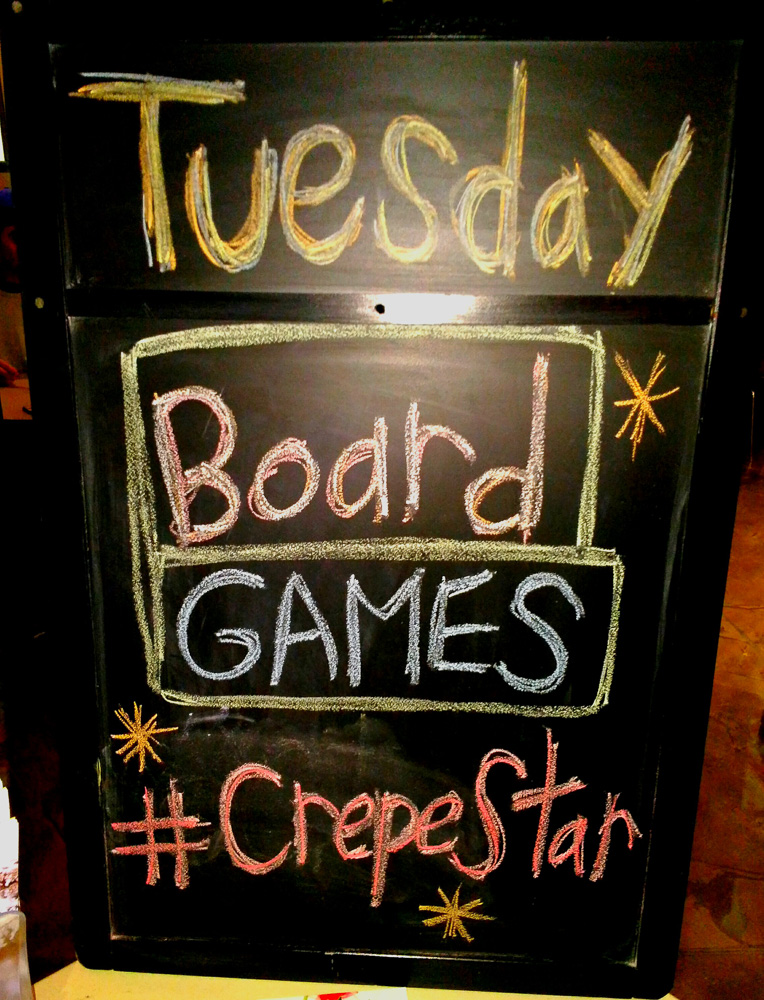 Tuesday
Board
GAMES
#CrepeStar